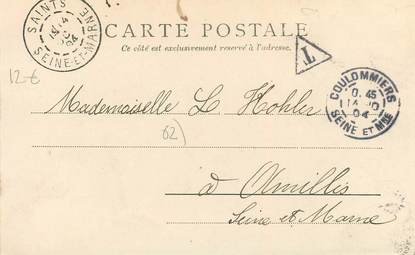 SAINTS
04
SEINE-ET-MARNE
CARTE POSTALE
Ce côté est exclusivement reservé à l'adresse.
T
12-€
COULOMMIERS
0.45
04
SEINE ET Mne
Mademoiselle L Hohler
62)
à Amillis
Seine et Marne